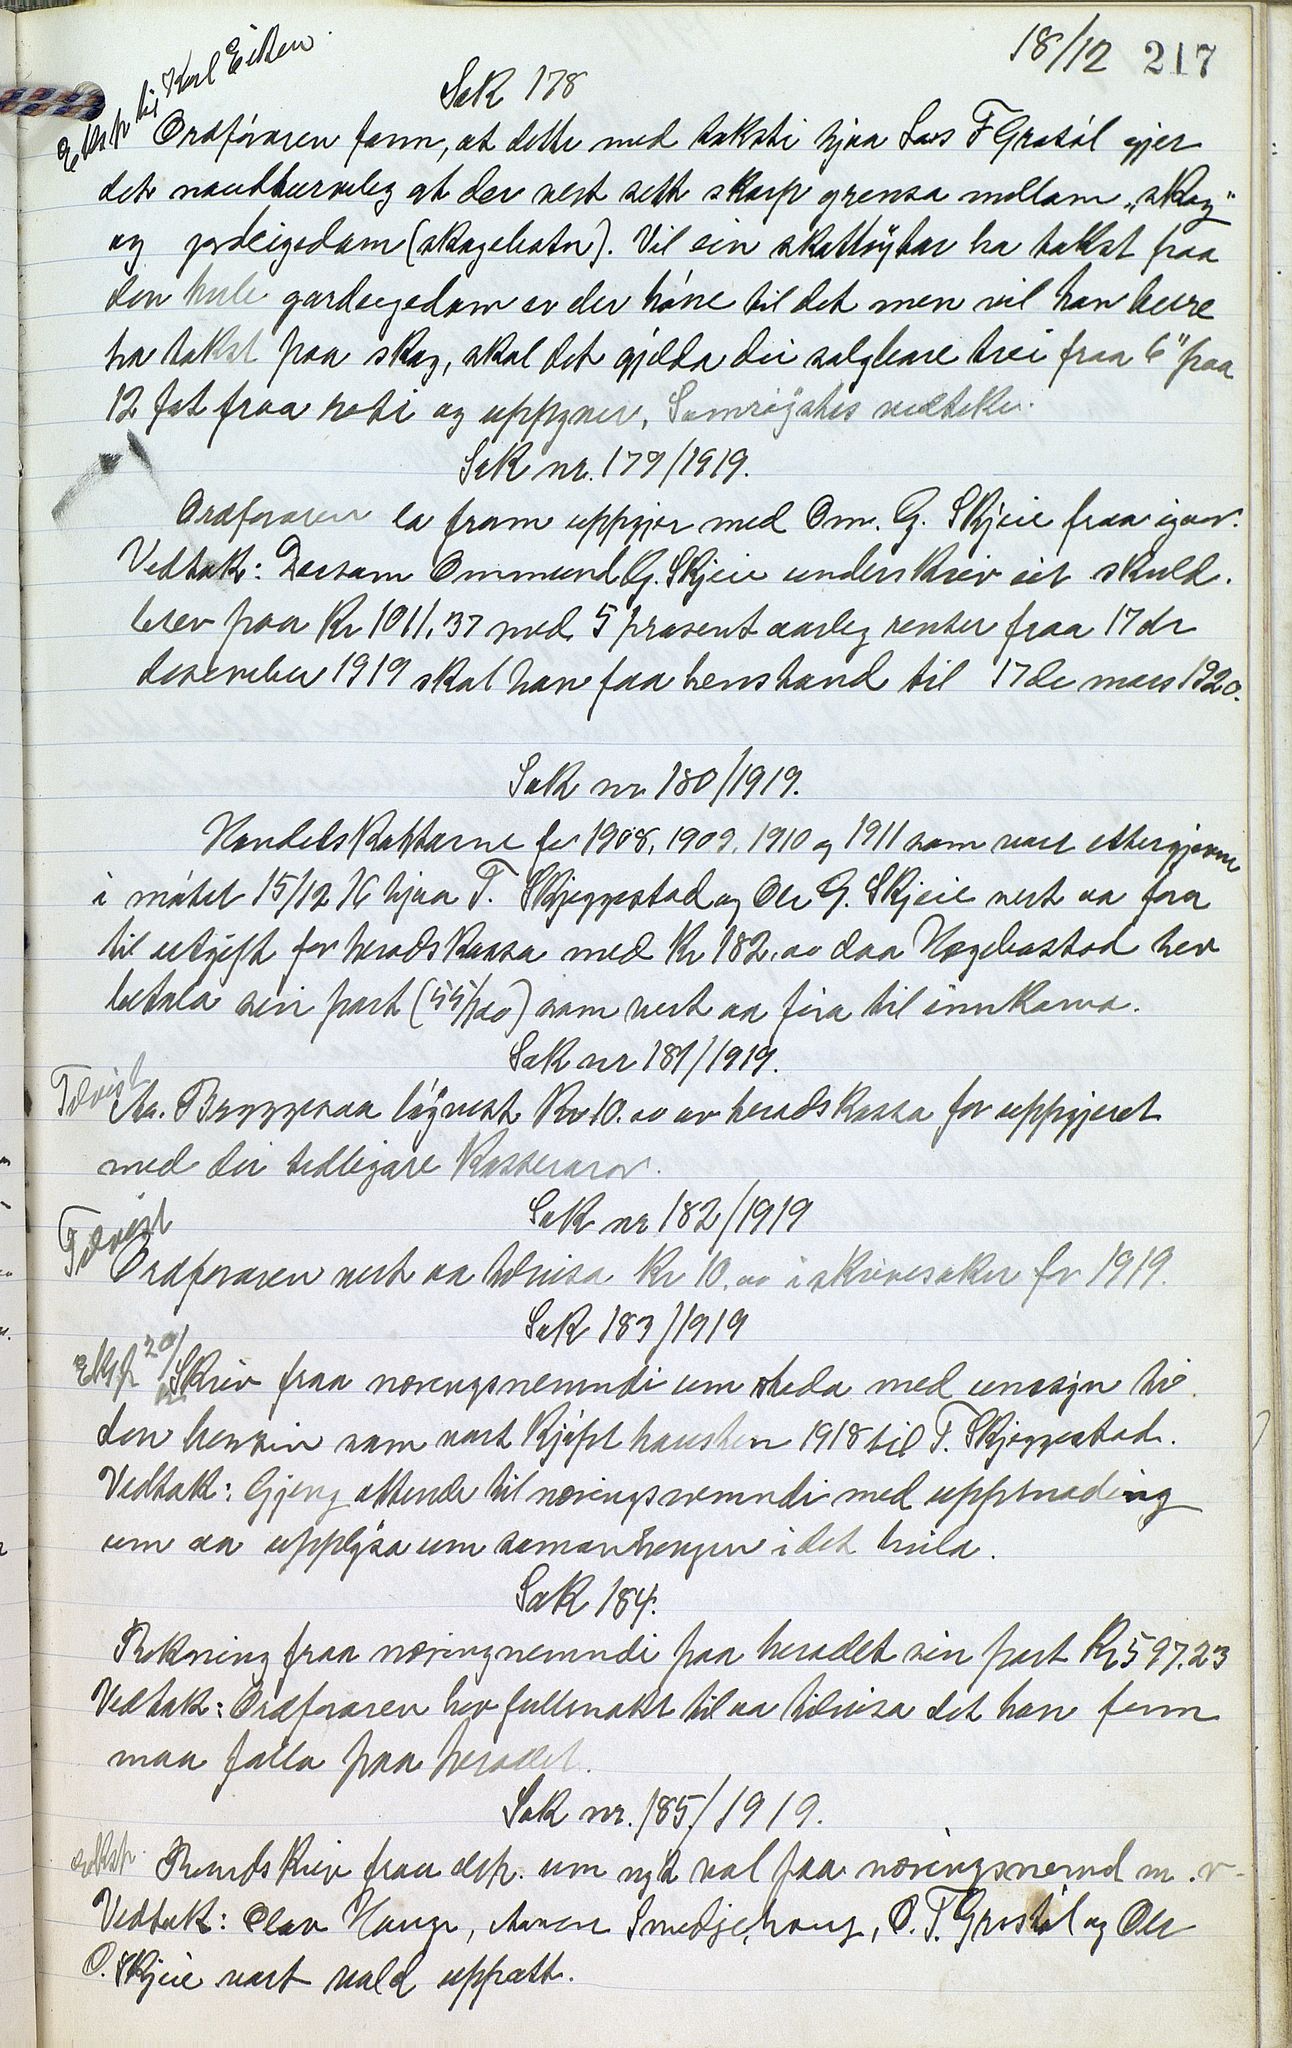 18/12 217
Eksp til Karl Eiken.
Sak 178
Ordføraren fann, at dette med taksti hjaa Lars F Grostøl gjer
det naudturveleg at der vert sett skarp grensa millom "skog"
og jordeigedom (skogebotn). Vil ein skattøytar ha takst paa
den heile gardeigedom er der høve til det men vil han berre
ha takst paa skog, skal det gjelda dei salgbare trei fraa 6" paa
12 fot fraa roti og uppyver, Samrøystes vedteke.
Sak nr. 179/1919.
Ordføraren la fram uppgjer med Om. G. Skjeie fraa igaar.
Vedtak: Dersom Ommund G. Skjeie underskriv eit skuld-
brev paa Kr 1011,37 med 5 prosent aarleg renter fraa 17de
desember 1919 skal han faa henstand til 17de mars 1920.
Sak nr 180/1919.
Handelskattarne for 1908, 1909, 1910 og 1911 som vart ettergjevne
i møtet 15/12 16 hjaa T. Skjeggestad og Ole G. Skjeie vert aa føra
til utgjift for heradskassa med Kr 182.00 daa Hægebostad hev
betala sin part (55/100) som vert aa føra til innkoma.
Sak nr 181/1919.
Tilvist
Aa. Bryggesaa løyvest Kr 10.00 av heradskassa for uppgjeret
med dei tidligare Kasserarar.
Sak nr 182/1919
Tilvist
Ordføraren vert aa tilvisa Kr 10.00 i skrivesaker for 1919.
Sak 183/1919
Eksp 20/12
Skriv fraa næringsnemndi um skeda med umsyn til
den bensin som vart kjøpt hausten 1918 til T. Skjeggestad.
Vedtak: Gjeng attende til næringsnemndi med uppmoding
um aa upplysa um samanhengen i det heila.
Sak 184.
Rekning fraa næringnemndi paa heradet sin part Kr 597.23
Vedtak: Ordføraren hev fullmakt til aa tilvisa det han finn
maa falla paa heradet.
Sak nr. 185/1919.
eksp.
Rundskriv fraa dep. um nytt val paa næringsnemnd m. v.
Vedtak: Olav Hauge, Smedjehaug, O. T. Grostøl og Ole
O. Skjeie vart vald uppatt.